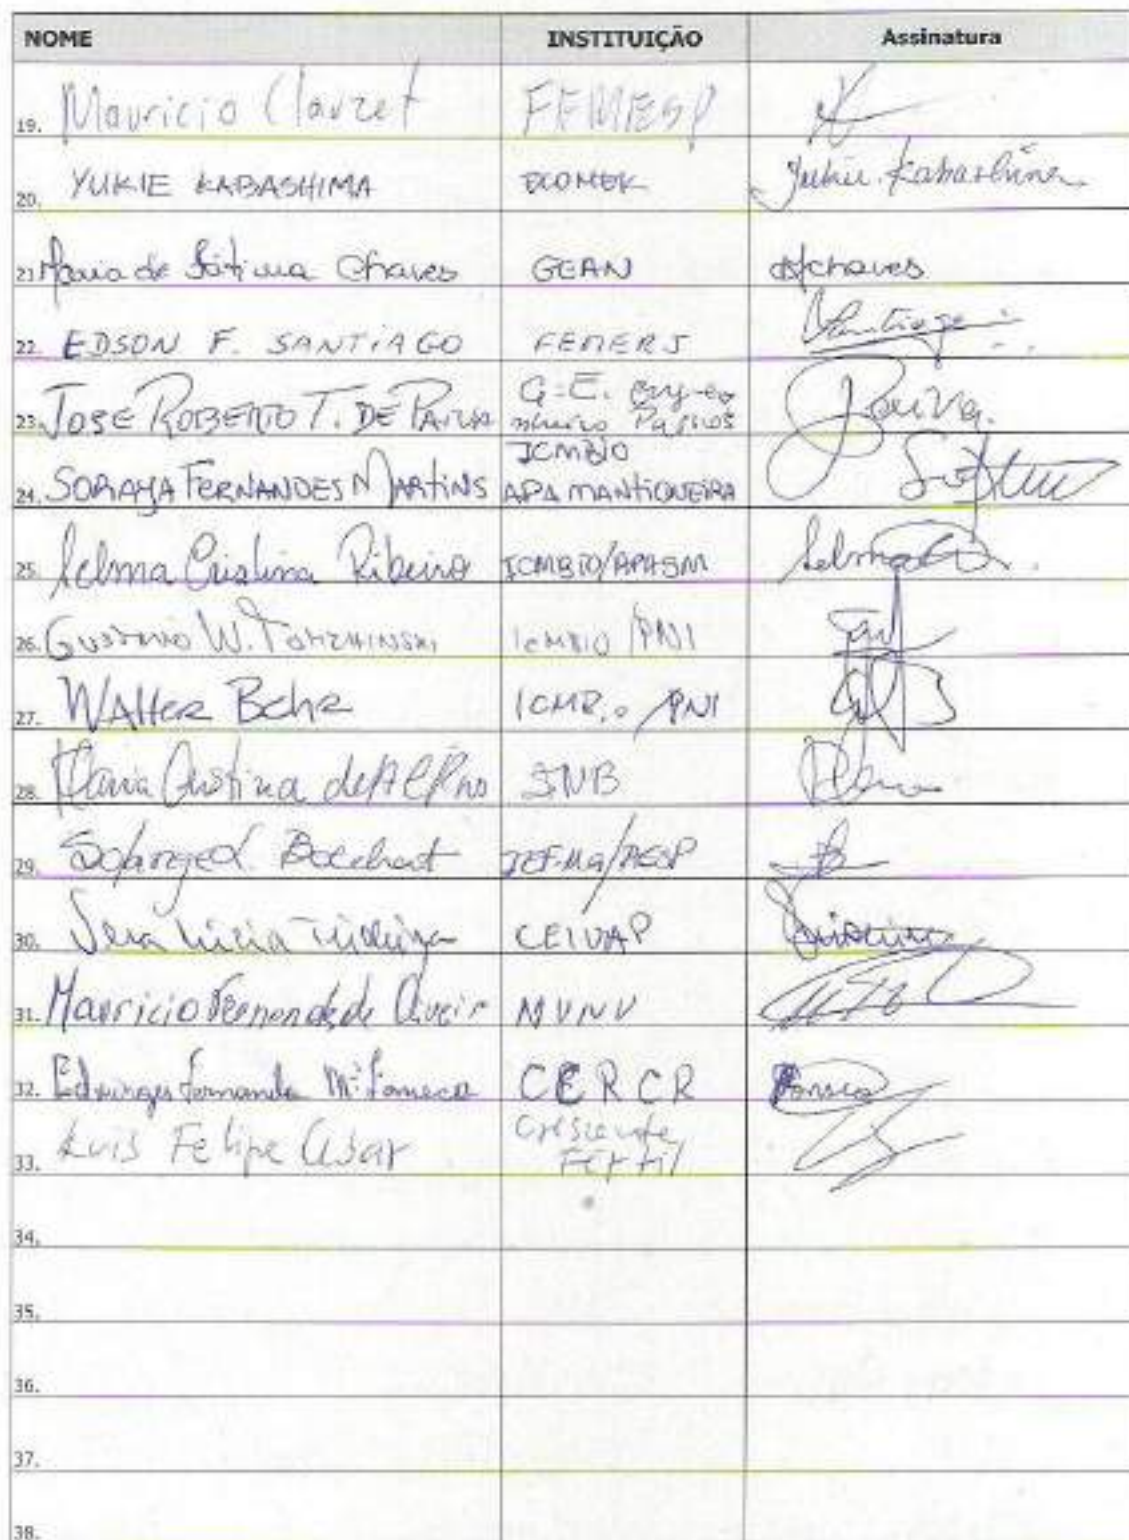 NOME INSTITUIÇÃO Assinatura
19. Mauricio Clauzet FEMESP
20. YUKIE KABASHIMA ECOMEK Yukie Kabashima
21. Maria de Fátima Chaves GEAN Chaves
22. EDSON F. SANTIAGO FEMERJ Santiago
23. JOSE ROBERTO T. DE PAIVA G.E. Paiva.
24. SORAYA FERNANDES MARTINS ICMBIO APA MANTIQUEIRA
25. Selma Cristina Ribeiro ICMBIO/APASM Selma
26. GUSTAVO W. TOMZHINSKI ICMBIO/PNI
27. WALTER Behr ICMBio/PNI
28. Maria Cristina de INB
29. IEF-MG/PESP
30. Vera Lúcia Teixeira CEIVAP
31. Mauricio Fernandes de Oliveir MVNV
32. Edwirges Fernanda Mª Fonseca CERCR Fonseca
33. Luis Felipe Cesar Crescente Fértil
34.
35.
36.
37.
38.